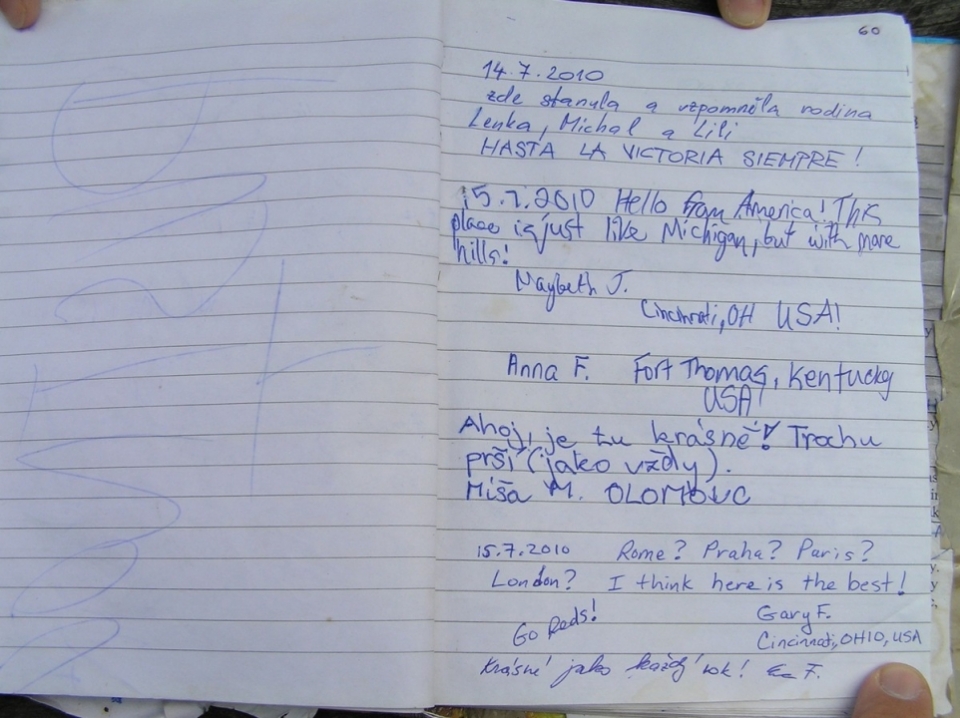 60
14.7.2010
zde stanula a vzpomněla rodina
Lenka, Michal a Lili
HASTA LA VICTORIA SIEMPRE!
15.7.2010 Hello from America! This
place is just like Michigan, but with more
hills!
Maybeth J.
Cincinnati, OH USA!
Anna F. Fort Thomas, Kentucky
USA!
Ahoj, je tu krásně! Trochu
prší (jako vždy).
Míša M. OLOMOUC
15.7.2010 Rome? Praha? Paris?
London? I think here is the best!
Go Reds! Gary F.
Cincinnati, OHIO, USA
Krásné jako každý rok! F.